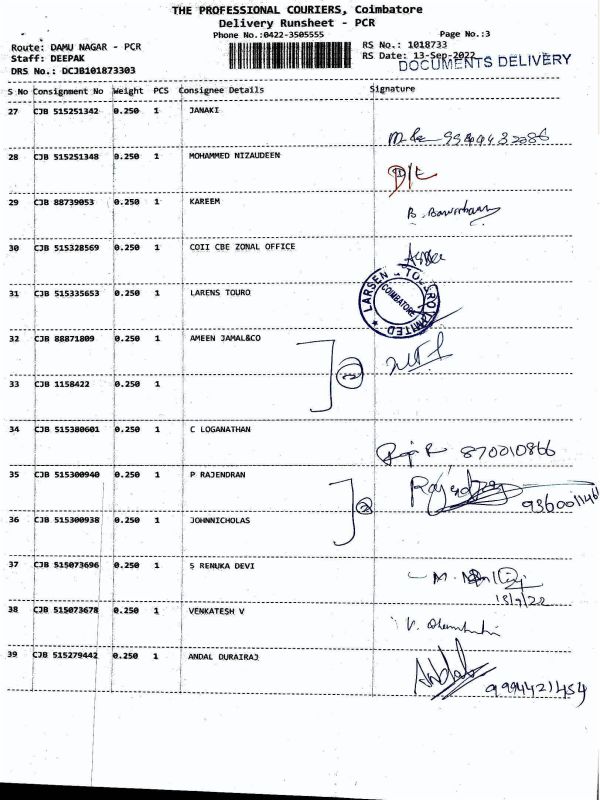 THE PROFESSIONAL COURIERS, Coimbatore
Delivery Runsheet - PCR
Phone No.:0422-3505555 Page No.:3
Route: DAMU NAGAR - PCR RS No.: 1018733
Staff: DEEPAK RS Date: 13-Sep-2022
DOCUMENTS DELIVERY
DRS No.: DCJB101873303
S No Consignment No Weight PCS Consignee Details Signature
27 CJB 515251342 0.250 1 JANAKI
28 CJB 515251348 0.250 1 MOHAMMED NIZAUDEEN
29 CJB 88739053 0.250 1 KAREEM
30 CJB 515328569 0.250 1 COII CBE ZONAL OFFICE
31 CJB 515335653 0.250 1 LARENS TOURO
LARSEN & TOUBRO LIMITED
COIMBATORE
32 CJB 88871809 0.250 1 AMEEN JAMAL&CO
33 CJB 1158422 0.250 1
34 CJB 515380601 0.250 1 C LOGANATHAN
870010866
35 CJB 515300940 0.250 1 P RAJENDRAN
Rajendran
36 CJB 515300938 0.250 1 JOHNNICHOLAS
37 CJB 515073696 0.250 1 S RENUKA DEVI
38 CJB 515073678 0.250 1 VENKATESH V
39 CJB 515279442 0.250 1 ANDAL DURAIRAJ
Andal
9994421454